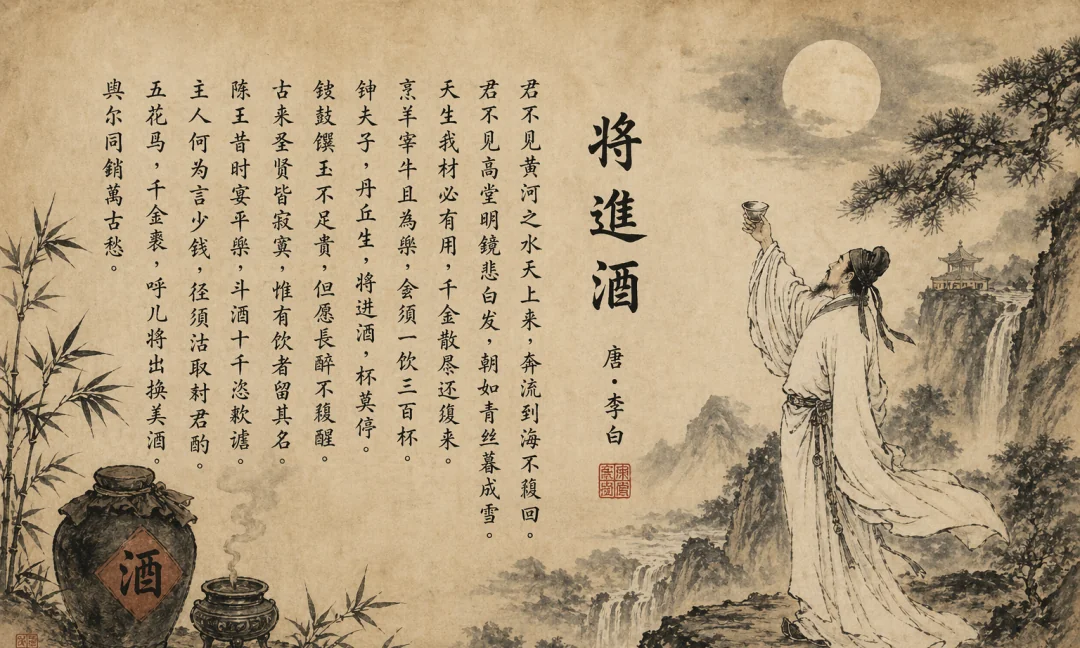 將進酒
唐·李白
君不见黄河之水天上来,奔流到海不複回。
君不见高堂明鏡悲白发,朝如青丝暮成雪。
天生我材必有用,千金散尽还復来。
烹羊宰牛且為樂,会須一饮三百杯。
钟夫子,丹丘生,将进酒,杯莫停。
鼓馔玉不足貴,但愿長醉不複醒。
古来圣贤皆寂寞,惟有饮者留其名。
陈王昔时宴平樂,斗酒十千恣歡謔。
主人何为言少钱,径須沽取対君酌。
五花馬,千金裘,呼儿将出换美酒。
與尔同銷萬古愁。
酒